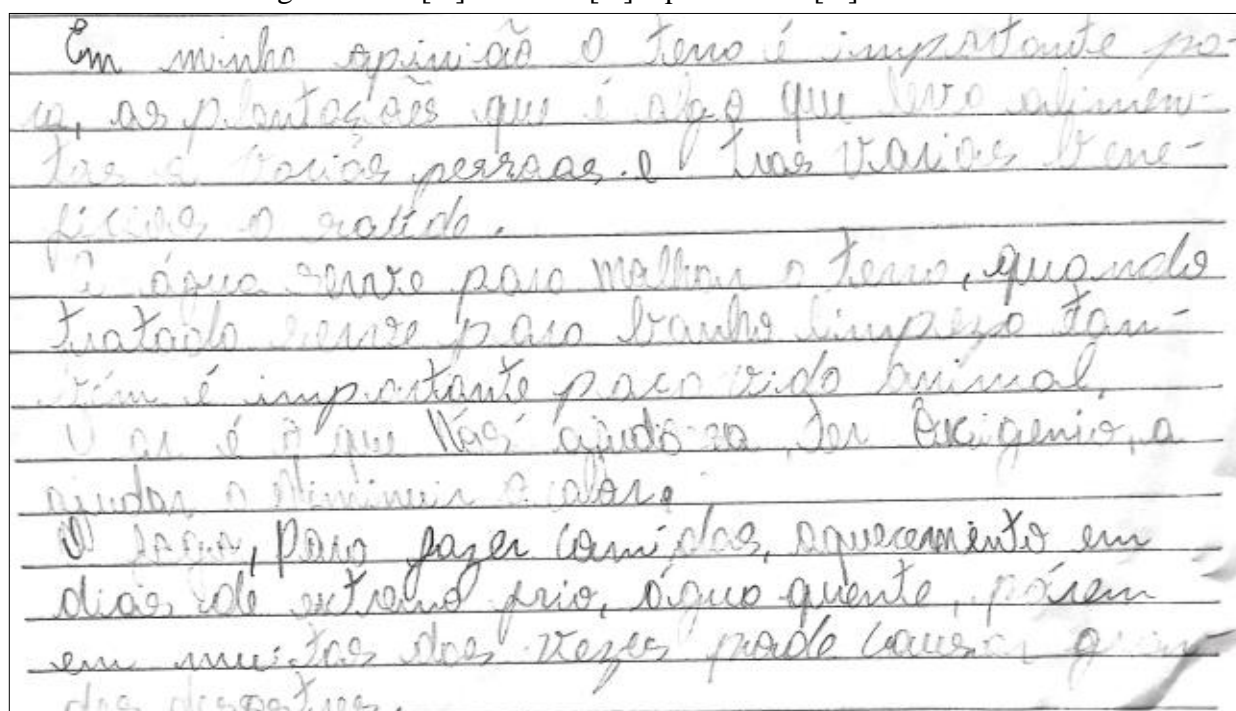 Em minha opinião a terra é importante pa-
ra, as plantações que é algo que leva alimen-
tas a varias pessoas. e tras varias bene-
ficios a saúde.
A água serve para molhar a terra, quando
tratada serve para banho limpeza tan-
bém é importante para vida animal,
O ar é o que nós ajuda a ter Oxigenio, a
ajudar a diminuir o calor.
O fogo, para fazer comidas, aquecemento em
dias de extremo frio, água quente, pórem
em muitas das vezes pode causar gran
des desastres.